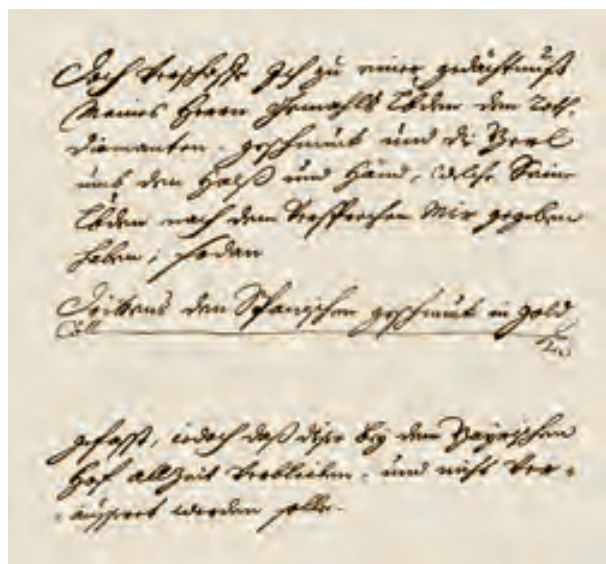 Doch verschaffe Ich zu einer gedächtnuß
Meines Herrn Gemahls Lbden den Roth,
Diamanten - geschmuck und die Perl
umb den Halß und Händ, welche Seine
Lbden nach dem versprechen Mir gegeben
haben; sodan
Drittens den Spanischen geschmuck in gold
gefasst, iedoch daß diser bey dem Bayrischen
Hof allzeit verbleiben, und nicht ver-
-äussert werden solle.